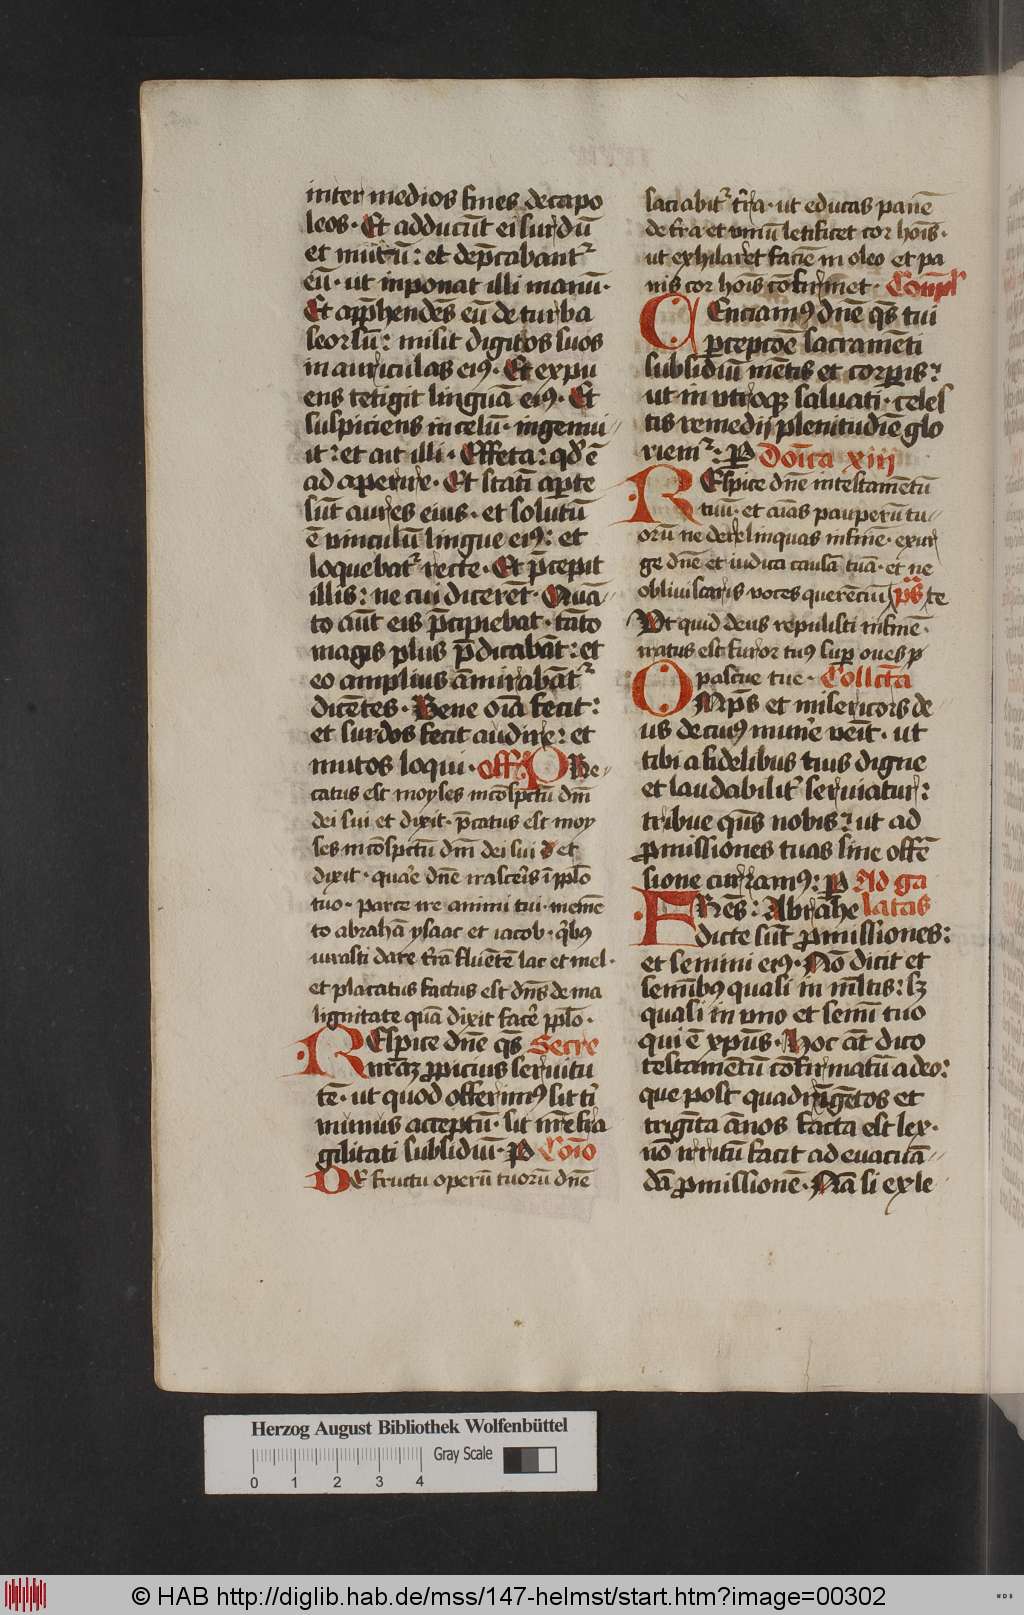 inter medios fines decapo
leos. Et adducūt ei surdū
et mutū: et dep̄cabantᷣ
eū. ut inponat illi manū.
Et app̄hendēs eū de turba
seorsū: misit digitos suos
in auriculas eiꝰ. Et expu
ens tetigit linguā eiꝰ. Et
suspiciens in celū. ingemu⸗
it: et ait illi. Effeta: qd̄ ē
ad aperire. Et statī aꝑte
sūt aures eius. et solutū
ē vinculū lingue eiꝰ: et
loquebatᷣ recte. Et p̄cepit
illis: ne cui dicerēt. Quā⸗
to aūt eis p̄cipiebat. tāto
magis plus p̄dicabāt: et
eo amplius āmirabātᷣ
dicētes. Bene oīa fecit:
et surdos fecit audire: et
mutos loqui. off̄ PRe⸗
catus est moyses in ꝯspctū dn̄i
dei sui et dixit. p̄catus est moy
ses in ꝯspctū dn̄i dei sui et
dixit. quar̄e dn̄e irasceris ī pplo̅
tuo. parce ire animi tui. memē
to abrahā ysaac et iacob. qͥbus
iurasti dare t̄rā fluētē lac et mel.
et placatus factus est dn̄s de ma
lignitate quā dixit facer̄e pplo̅.
REspice dn̄e qs̄ Secre
nr̄aꝫ ꝓpicius seruitu
tē. ut quod offerimꝰ sit ti
munus acceptū. sit nr̄e fra
gilitati subsidiū. P Com̄o
DE fructu operū tuorū dn̄e
saciabitᷣ t̄ra. ut educas panē
de t̄ra et vinū letificet cor hoīs.
ut exhilaret faciē in oleo et pa
nis cor hoīs ꝯfirmet. Compl̄
SEnciamꝰ dn̄e qs̄ tui
ꝑcepcōe̅ sacramēti
subsidiū mētis et corꝑis:
ut in utroqꝫ saluati. celes
tis remedij plenitudiē glo
riemᷣ: P Doīca xiij
REspice dn̄e in testamētū
tuū. et aīas pauperū tu⸗
orū ne derelinquas in finē. exur
ge dn̄e et iudica causā tuā. et ne
obliuiscaris voces querēciū p̄s te
Vt quid deus repulisti in finē.
iratus est furor tuꝰ suꝑ oues p
pascue tue. Collcta
OMps̄ et misericors de
us de cuiꝰ munere venīt. ut
tibi a fidelibus tuis digne
et laudabilitᷣ seruiatur:
tribue qs̄ nobis: ut ad
ꝓmissiones tuas sine offē
sione curramꝰ: P Ad ga
FRēs: Abrahe latas
dicte sūt ꝓmissiones:
et semini eiꝰ. Nō dicit et
seminibꝰ quasi in multis: sꝫ
quasi in vno et semī tuo
qui ē xpūs. Hoc āt dico
testamētū ꝯfirmatū a deo:
que post quadrigētos et
trigīta ānos facta est lex.
nō irritū facit ad euacuā⸗
dā ꝓmissionē. Nā si ex le
Herzog August Bibliothek Wolfenbüttel
Gray Scale
0 1 2 3 4
© HAB http://diglib.hab.de/mss/147-helmst/start.htm?image=00302